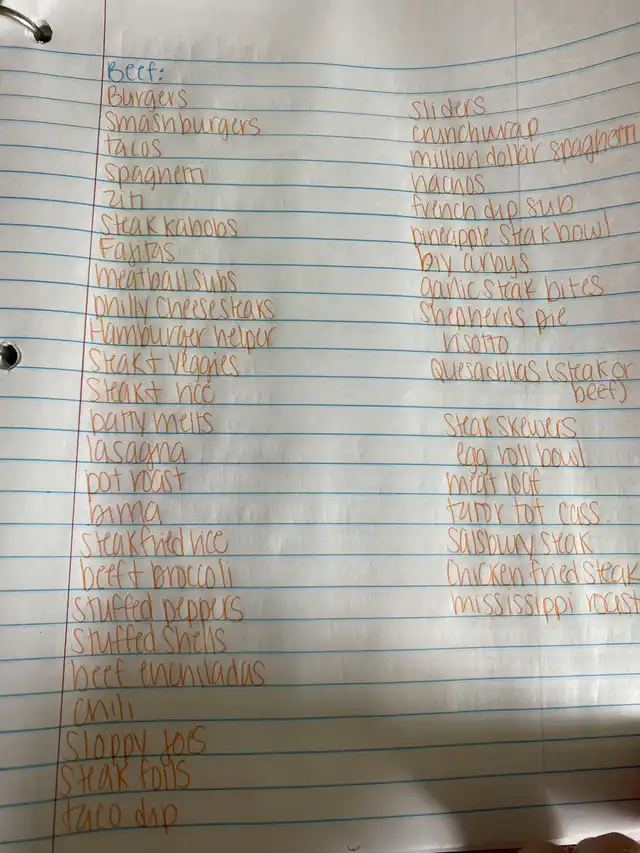 Beef:
Burgers
Smashburgers
tacos
spaghetti
ziti
steak kabobs
Fajitas
meatball subs
philly cheesesteaks
Hamburger helper
Steak + veggies
Steak + rice
patty melts
lasagna
pot roast
steak fried rice
beef + broccoli
stuffed peppers
stuffed shells
beef enchiladas
chili
sloppy joes
steak foils
taco dip
sliders
crunchwrap
million dollar spaghetti
nachos
french dip sub
pineapple steak bowl
diy arbys
garlic steak bites
shepherds pie
risotto
Quesadillas (steak or
beef)
steak skewers
egg roll bowl
meat loaf
tator tot cass.
salsbury steak
Chicken fried steak
mississippi roast